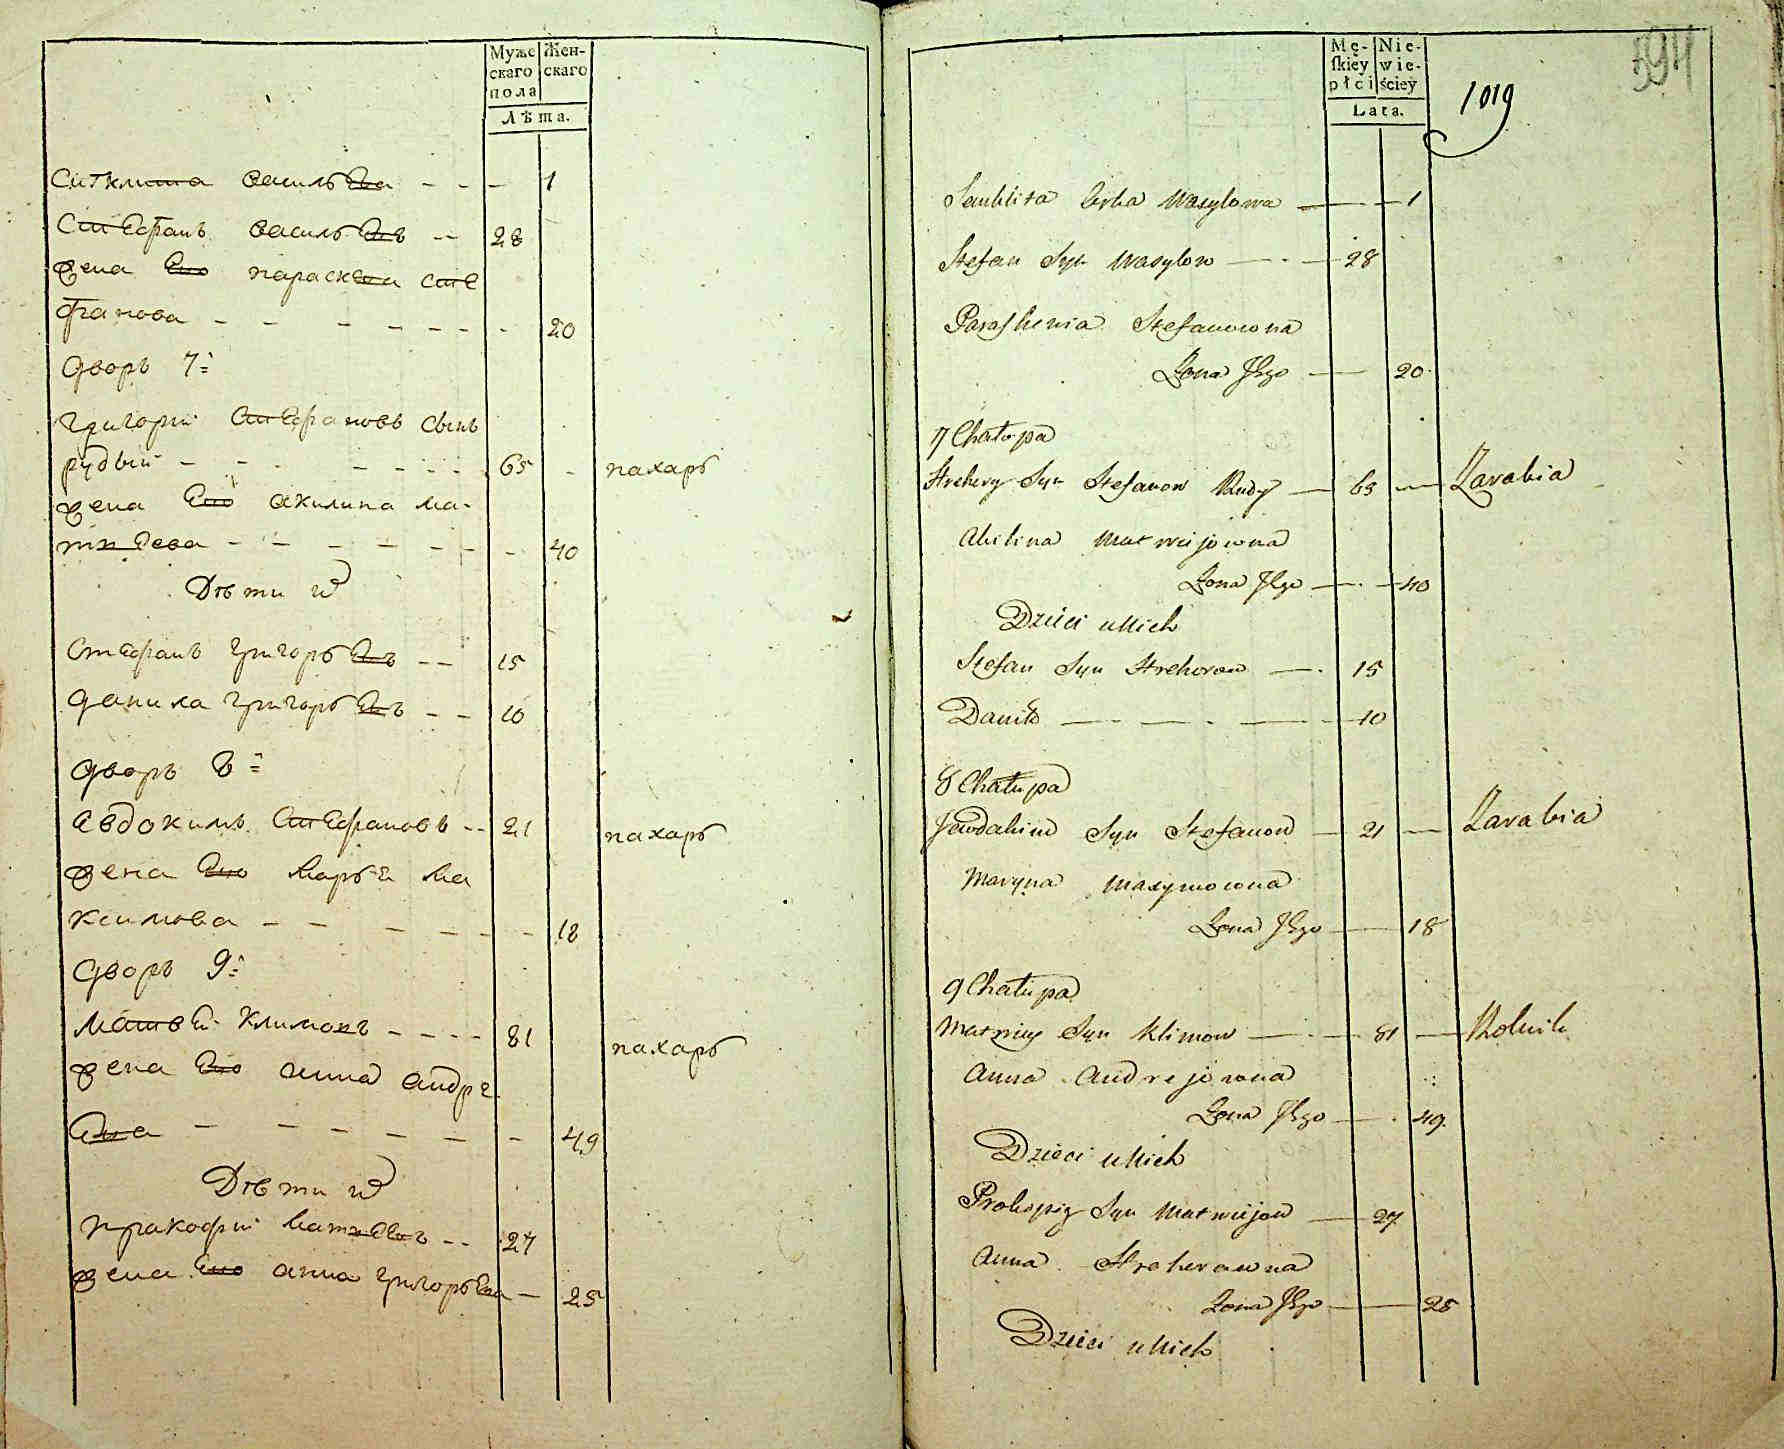 Муже
скаго
пола
Жен-
скаго
Лѣта.
васильева - - - 1
Стефанъ васильевъ - - 28
жена ево параскева сте
фанова - - - - - - - 20
дворъ 7й
григорий Стефановъ сынъ
рудый - - - - - - 65 - пахарь
жена ево акилина ма-
твеева - - - - - - - 40
Дѣти их
Стефанъ григорьевъ - - 15
данила григорьевъ - - 10
дворъ 8й
авдокимъ Стефановъ - - 21 пахарь
жена ево марья ма
ксимова - - - - - - 18
дворъ 9й
матвей климовъ - - - - 81 пахарь
жена ево анна андре
ева - - - - - - - 49
Дѣти их
пракофий матвеевъ - - 27
жена ево анна григорьева - 25
Mę-
skiey
płci
Nie-
wie-
ściey
Lata.
1019
594
Corka Wasylowa — — 1
Stefan Syn Wasylow — - — 28
Paraskewia Stefanowna
Żona Jego — — 20
7 Chałupa
Hrehory Syn Stefanow Rudy — 65 — Zarabia
Akilina Matwiejowna
Żona Jego — - — 40
Dzieci u Nich
Stefan Syn Hrehorow — - 15
Daniło — - — - — — 10
8 Chałupa
Jewdakim Syn Stefanow — 21 — Zarabia
Maryna Maxymowna
Żona Jego — — 18
9 Chałupa
Matwiey Syn Klimow — - — 81 — Rolnik
Anna Andrejowna
Żona Jego — - 49
Dzieci u Nich
Prokopiy Syn Matwiejow — 27
Anna Hrehorowna
Żona Jego — — 25
Dzieci u Nich